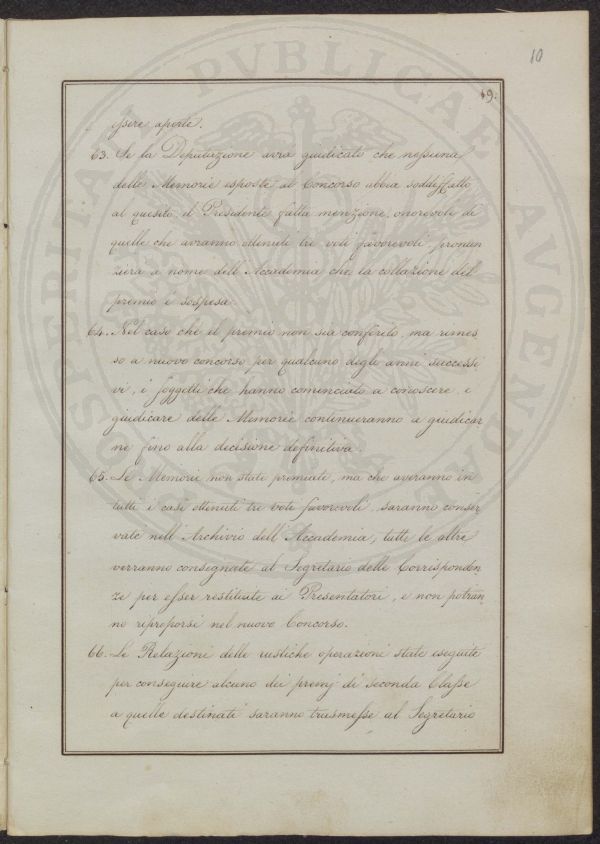 10
19.
essere aperte.
63. Se la Deputazione avrà giudicato che nessuna
delle Memorie esposte al Concorso abbia soddisfatto
al quesito, il Presidente fatta menzione onorevole di
quelle che avranno ottenuti tre voti favorevoli, pronun
zierà a nome dell'Accademia che la collazione del
premio è sospesa.
64. Nel caso che il premio non sia conferito, ma rimes
so a nuovo concorso per qualcuno degli anni successi
vi, i soggetti che hanno cominciato a conoscere, e
giudicare delle Memorie continueranno a giudicar
ne fino alla decisione definitiva.
65. Le Memorie non state premiate, ma che averanno in
tutti i casi ottenuti tre voti favorevoli, saranno conser
vate nell'Archivio dell'Accademia; tutte le altre
verranno consegnate al Segretario delle Corrisponden
ze per esser restituite ai Presentatori, e non potran
no riproporsi nel nuovo Concorso.
66. Le Relazioni delle rustiche operazioni state eseguite
per conseguire alcuno dei premj di seconda Classe
a quelle destinati saranno trasmesse al Segretario
PROSPERITATI PVBLICAE AVGENDAE